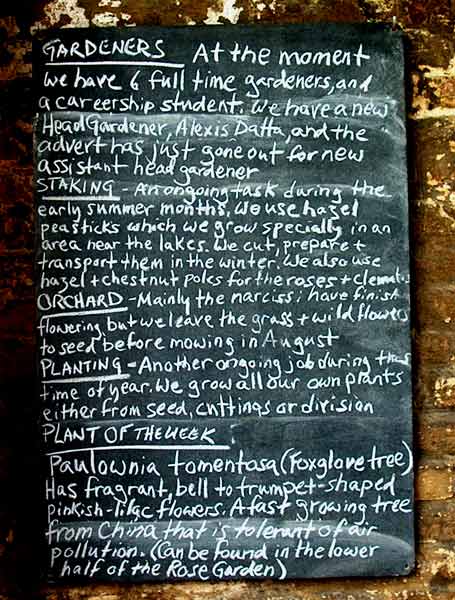 GARDENERS At the moment
we have 6 full time gardeners, and
a careership student. We have a new
Head Gardener, Alexis Datta, and the
advert has just gone out for new
assistant head gardener
STAKING - An ongoing task during the
early summer months. We use hazel
peasticks which we grow specially in an
area near the lakes. We cut, prepare +
transport them in the winter. We also use
hazel + chestnut poles for the roses + clematis
ORCHARD - Mainly the narcissi have finish
flowering but we leave the grass + wild flowers
to seed before mowing in August
PLANTING - Another ongoing job during this
time of year. We grow all our own plants
either from seed, cuttings or division
PLANT OF THE WEEK
Paulownia tomentosa (Foxglove tree)
Has fragrant, bell to trumpet-shaped
pinkish-lilac flowers. A fast growing tree
from China that is tolerant of air
pollution. (Can be found in the lower
half of the Rose Garden)